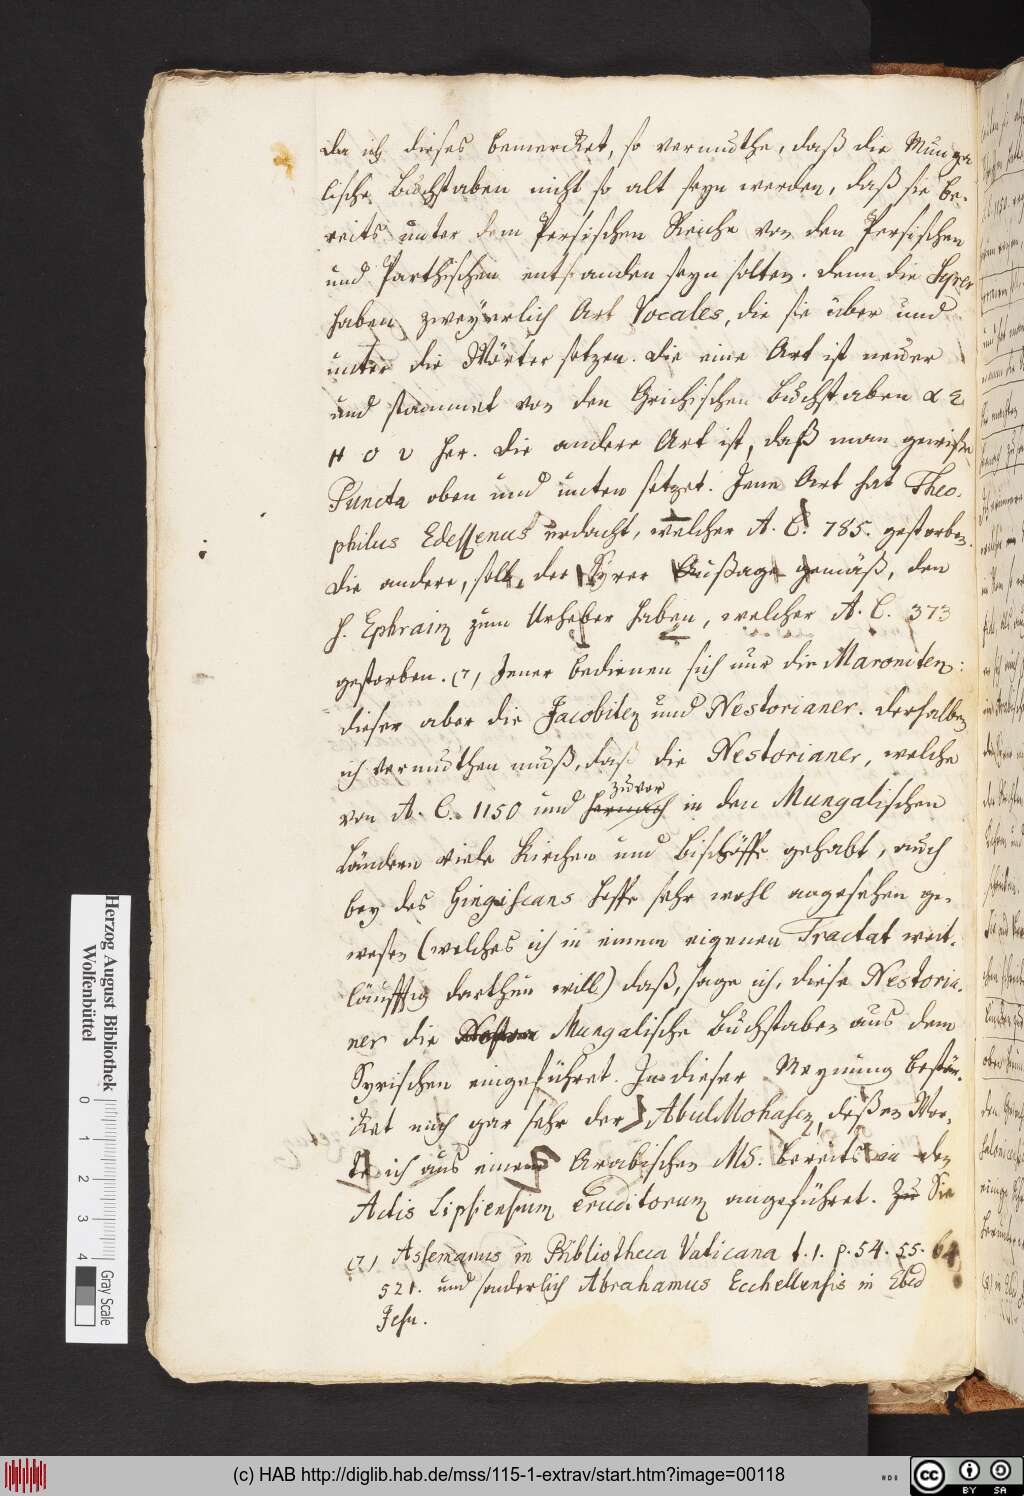 Da ich dieses bemerket, so vermuthe, daß die Munga-
lische Buchstaben nicht so alt seyn werden, daß sie be-
reits unter dem Persischen Reiche von den Persischen
und Parthischen entstanden seyn solten. Denn die Syrer
haben zweyerlich Art Vocales, die sie über und
unter die Wörter setzen. Die eine Art ist neuer
und stammet von den Grichischen Buchstaben α ε
H O υ her. Die andere Art ist, daß man gewiße
Puncta oben und unten setzet. Jene Art hat Theo-
philus Edessenus erdacht, welcher A. C. 785. gestorben.
Die andere, soll, der Syrer Außage gemäß, den
H. Ephraim zum Urheber haben, welcher A. C. 373
gestorben. (7) Jener bedienen sich nur die Maroniten:
dieser aber die Jacobiten und Nestorianer. Derhalben
ich vermuthen muß, daß die Nestorianer, welche
von A. C. 1150 und hernach zuvor in den Mungalischen
Ländern viele Kirchen und Bischöffe gehabt, auch
bey des Gingiscans Hoffe sehr wohl angesehen ge-
wesen (welches ich in einem eigenen Tractat weit-
läufftig darthun will) daß, sage ich, diese Nestoria-
ner die Mungalische Buchstaben aus dem
Syrischen eingeführet. In dieser Meynung bestär-
ket mich gar sehr der Abul Mohasen, deßen Wor-
te ich aus einem Arabischen MS. bereits in den
Actis Lipsiensium eruditorum angeführet. Zu Sie
(7) Assemanus in Bibliotheca Vaticana t. 1. p. 54. 55. 64
521. und sonderlich Abrahamus Ecchellensis in Ebed
Jesu.
Herzog August Bibliothek
Wolfenbüttel
0 1 2 3 4
Gray Scale
(c) HAB http://diglib.hab.de/mss/115-1-extrav/start.htm?image=00118
cc BY SA